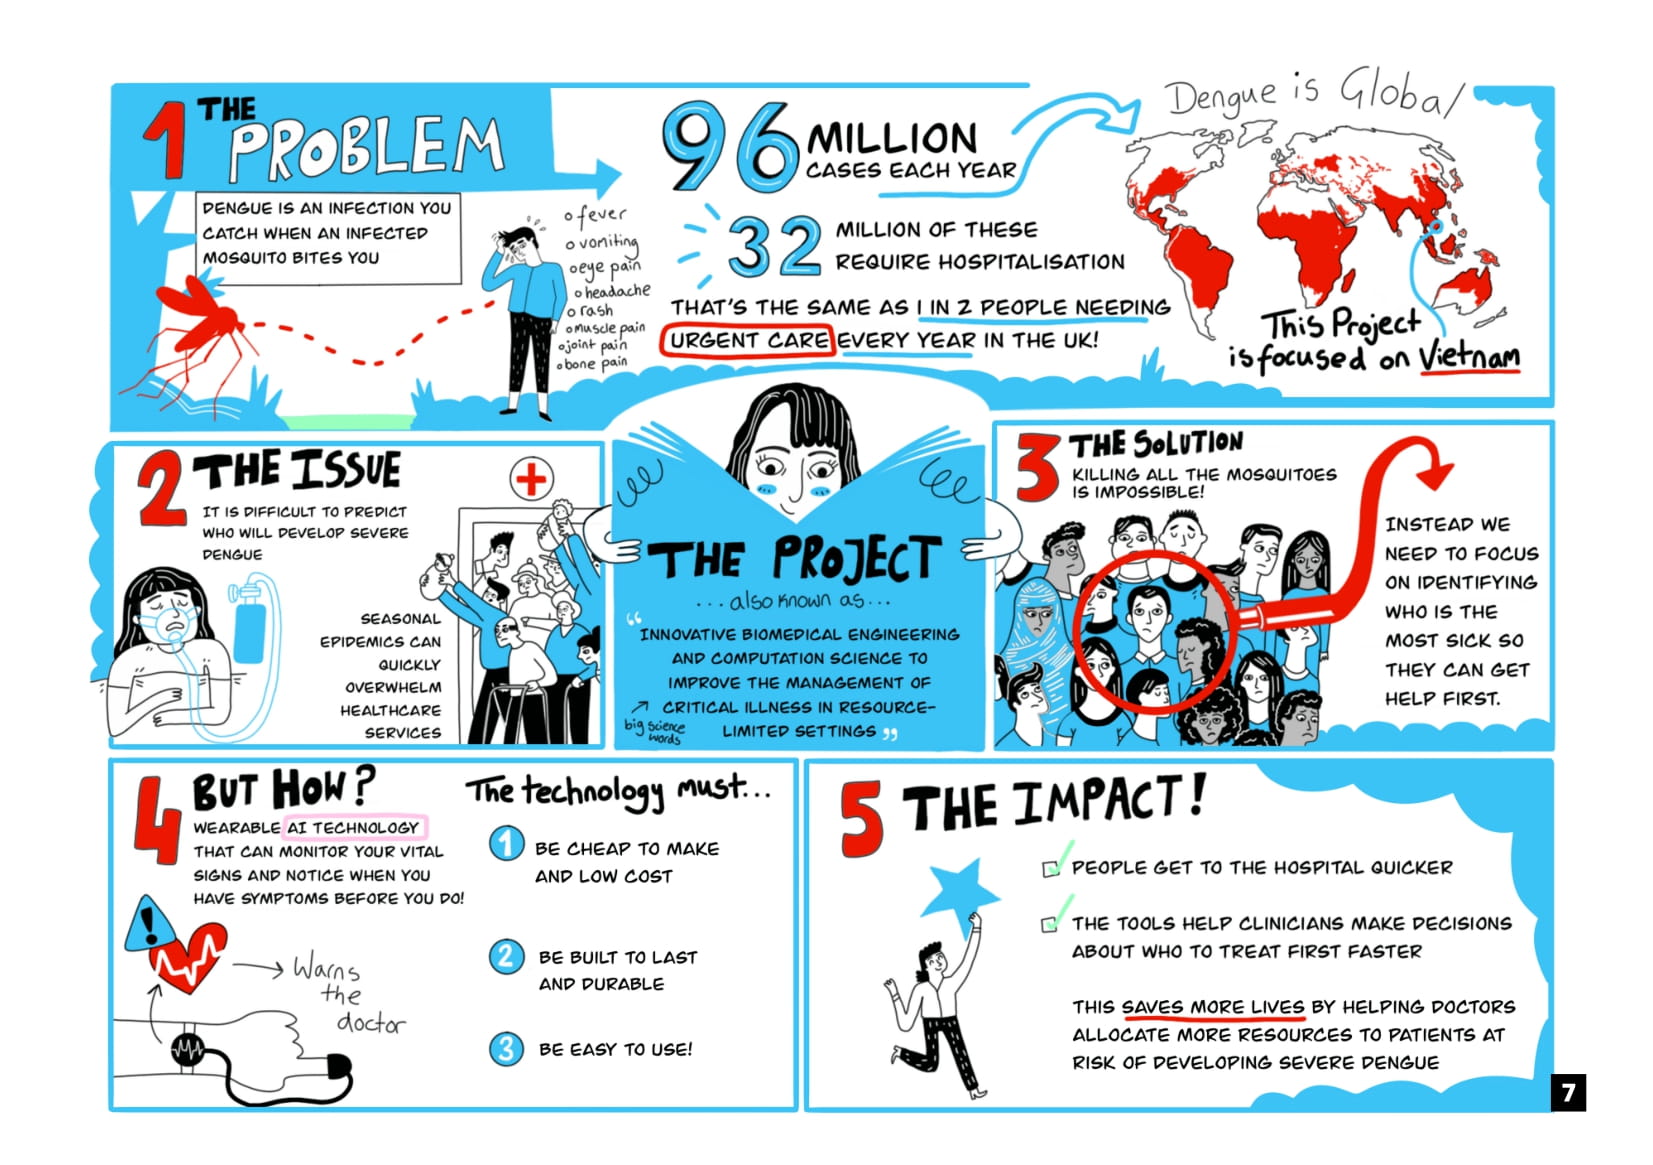 1 THE
PROBLEM
DENGUE IS AN INFECTION YOU
CATCH WHEN AN INFECTED
MOSQUITO BITES YOU
o fever
o vomiting
o eye pain
o headache
o rash
o muscle pain
o joint pain
o bone pain
96 MILLION
CASES EACH YEAR
32 MILLION OF THESE
REQUIRE HOSPITALISATION
THAT'S THE SAME AS 1 IN 2 PEOPLE NEEDING
URGENT CARE EVERY YEAR IN THE UK!
Dengue is Global
This Project
is focused on Vietnam
2 THE ISSUE
IT IS DIFFICULT TO PREDICT
WHO WILL DEVELOP SEVERE
DENGUE
SEASONAL
EPIDEMICS CAN
QUICKLY
OVERWHELM
HEALTHCARE
SERVICES
THE PROJECT
...also known as...
“INNOVATIVE BIOMEDICAL ENGINEERING
AND COMPUTATION SCIENCE TO
IMPROVE THE MANAGEMENT OF
CRITICAL ILLNESS IN RESOURCE-
LIMITED SETTINGS”
big science
words
3 THE SOLUTION
KILLING ALL THE MOSQUITOES
IS IMPOSSIBLE!
INSTEAD WE
NEED TO FOCUS
ON IDENTIFYING
WHO IS THE
MOST SICK SO
THEY CAN GET
HELP FIRST.
4 BUT HOW?
WEARABLE AI TECHNOLOGY
THAT CAN MONITOR YOUR VITAL
SIGNS AND NOTICE WHEN YOU
HAVE SYMPTOMS BEFORE YOU DO!
!
Warns
the
doctor
The technology must...
1 BE CHEAP TO MAKE
AND LOW COST
2 BE BUILT TO LAST
AND DURABLE
3 BE EASY TO USE!
5 THE IMPACT!
PEOPLE GET TO THE HOSPITAL QUICKER
THE TOOLS HELP CLINICIANS MAKE DECISIONS
ABOUT WHO TO TREAT FIRST FASTER
THIS SAVES MORE LIVES BY HELPING DOCTORS
ALLOCATE MORE RESOURCES TO PATIENTS AT
RISK OF DEVELOPING SEVERE DENGUE
7